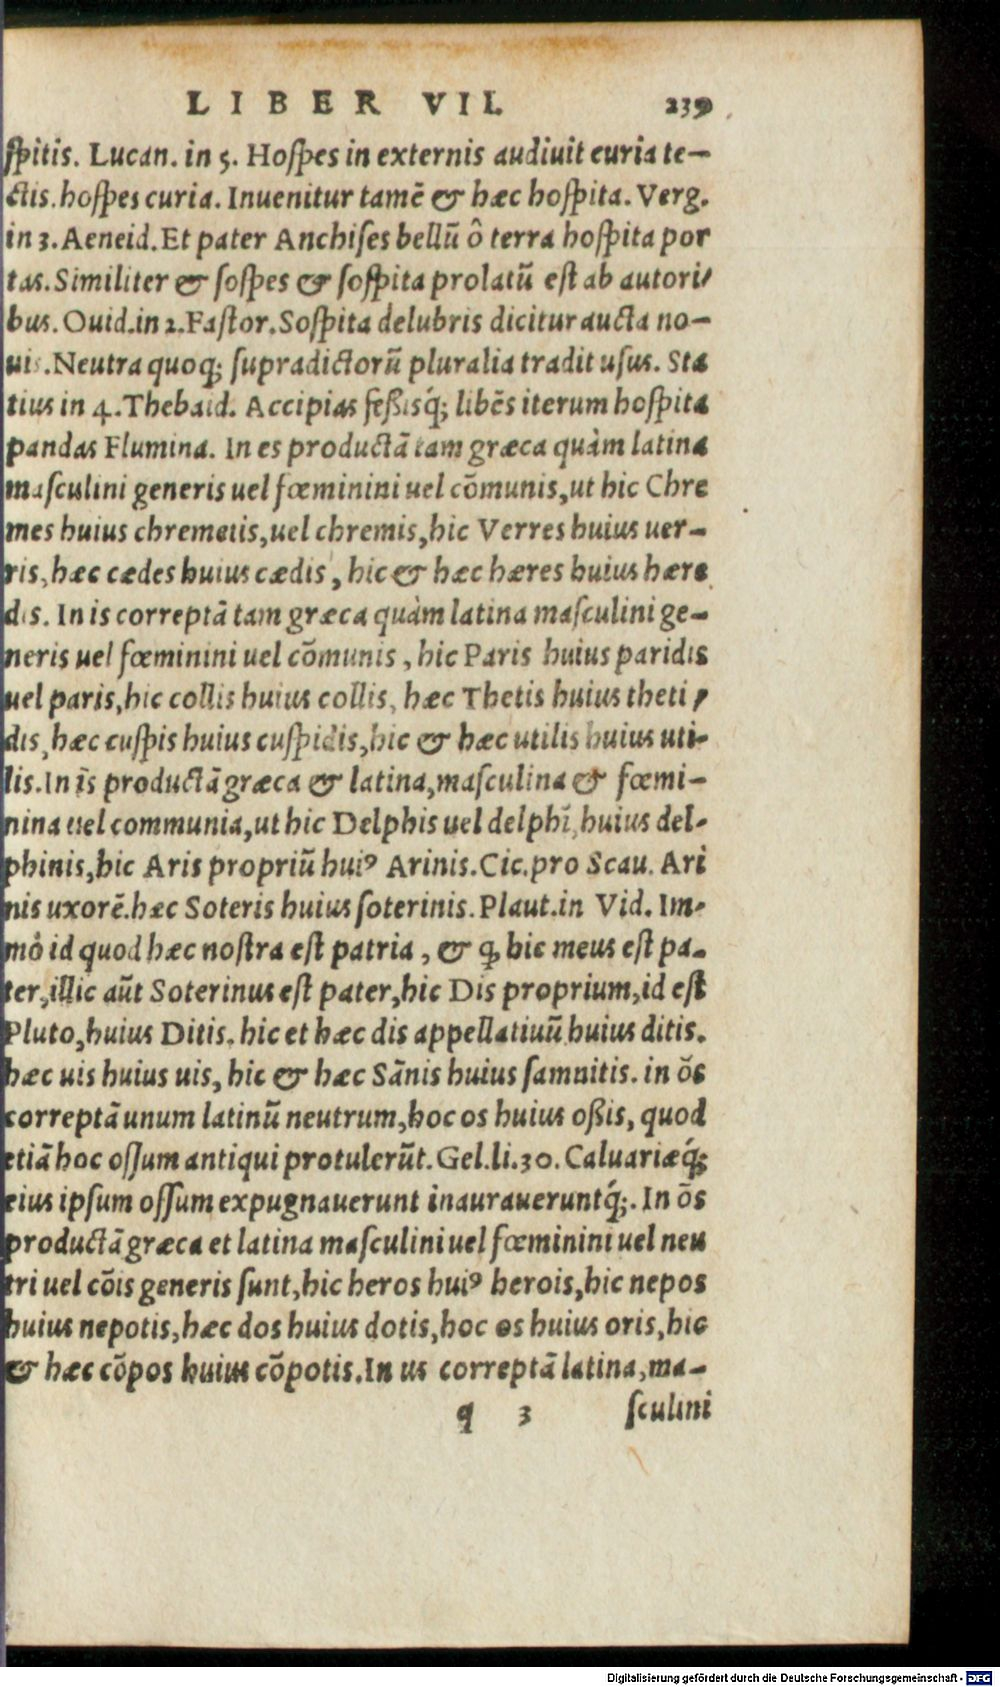 LIBER VII. 239
ſpitis. Lucan. in 5. Hoſpes in externis audiuit curia te-
ctis. hoſpes curia. Inuenitur tamẽ & hæc hoſpita. Verg.
in 3. Aeneid. Et pater Anchiſes bellũ ô terra hoſpita por
tas. Similiter & ſoſpes & ſoſpita prolatũ eſt ab autori-
bus. Ouid. in 2. Faſtor. Soſpita delubris dicitur aucta no-
uis. Neutra quoq; ſupradictorũ pluralia tradit uſus. Sta
tius in 4. Thebaid. Accipias feßisq́; libẽs iterum hoſpita
pandas Flumina. In es productã tam græca quàm latina
maſculini generis uel fœminini uel cõmunis, ut hic Chre
mes huius chremetis, uel chremis, hic Verres huius uer-
ris, hæc cædes huius cædis, hic & hæc hæres huius hære
dis. In is correptã tam græca quàm latina maſculini ge-
neris uel fœminini uel cõmunis, hic Paris huius paridis
uel paris, hic collis huius collis, hæc Thetis huius theti-
dis, hæc cuſpis huius cuſpidis, hic & hæc utilis huius uti-
lis. In is productã græca & latina, maſculina & fœmi-
nina uel communia, ut hic Delphis uel delphĩ, huius del-
phinis, hic Aris propriũ huiꝰ Arinis. Cic. pro Scau. Ari
nis uxorẽ. hæc Soteris huius ſoterinis. Plaut. in Vid. Im-
mò id quod hæc noſtra eſt patria, & q̃ hic meus eſt pa-
ter, illic aũt Soterinus eſt pater, hic Dis proprium, id eſt
Pluto, huius Ditis. hic et hæc dis appellatiuũ huius ditis.
hæc uis huius uis, hic & hæc Sãnis huius ſamnitis. in õs
correptã unum latinũ neutrum, hoc os huius oßis, quod
etiã hoc oſſum antiqui protulerũt. Gel. li. 30. Caluariæq́;
eius ipſum oſſum expugnauerunt inauraueruntq́;. In õs
productã græca et latina maſculini uel fœminini uel neu
tri uel cõis generis ſunt, hic heros huiꝰ herois, hic nepos
huius nepotis, hæc dos huius dotis, hoc os huius oris, hic
& hæc cõpos huius cõpotis. In us correptã latina, ma-
q 3 ſculini
Digitalisierung gefördert durch die Deutsche Forschungsgemeinschaft - DFG